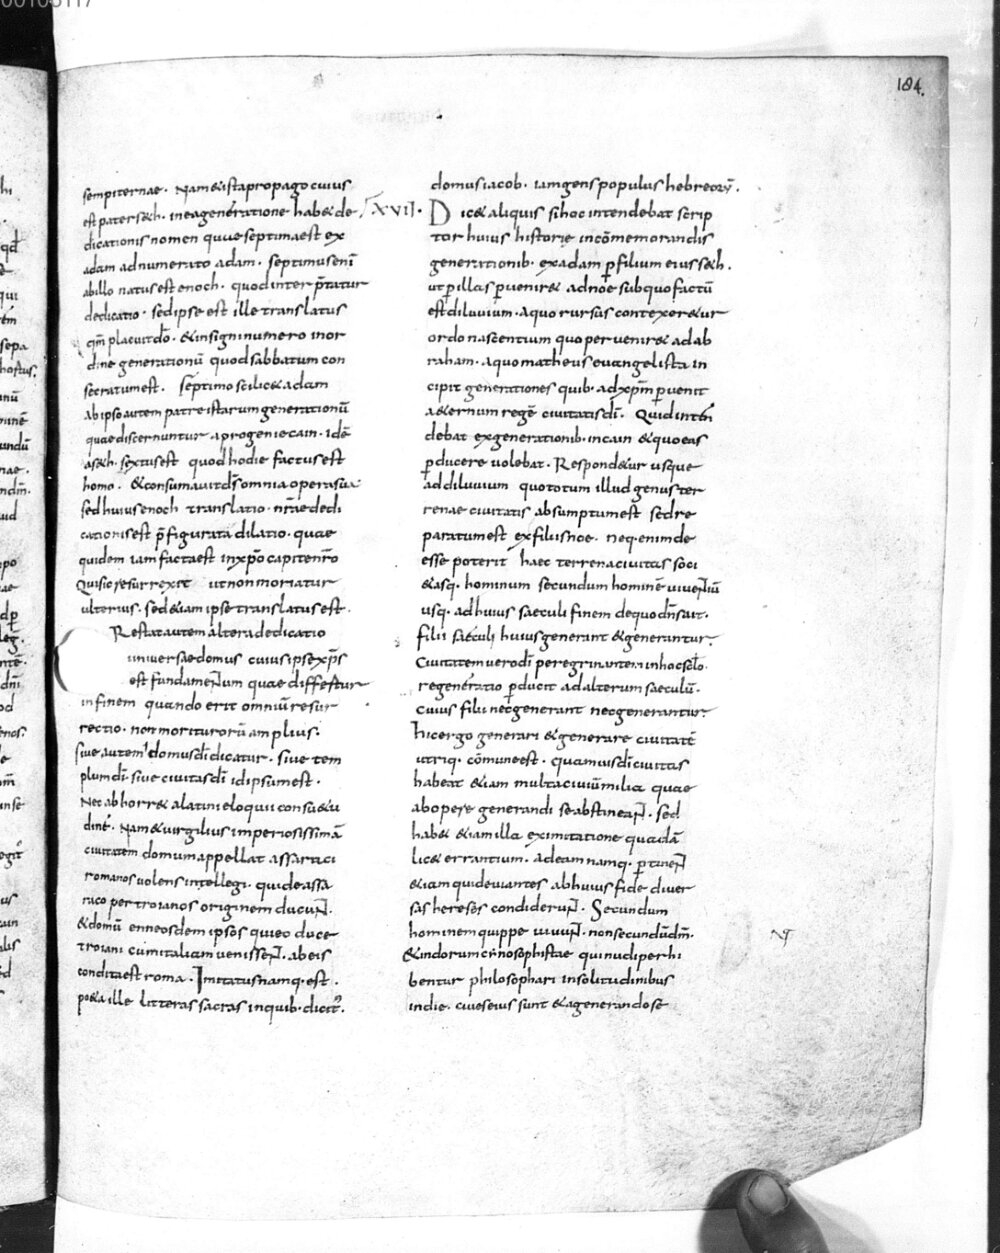 00103117
184.
sempiternae. Nam & ista propago cuius
est pater s&h. in ea generatione hab& de
dicationis nomen quae septima est ex
adam adnumerato adam. septimus enī
ab illo natus est enoch. quod interp̄tatur
dedicatio. sed ipse est ille translatus
qm̄ placuit dō. & insigni numero in or
dine generationū quod sabbatum con
secratum est. septimo scilic& adam
ab ipso autem patre istarum generationū
quae discernuntur a progenie cain. idē
a s&h. sextus est quod hodie factus est
homo. & consumauit ds̄ omnia opera sua
sed huius enoch translatio. nr̄ae dedi
cationis est p̄figurata dilatio. quae
quidem iam facta est in xp̄o capite nr̄o
Qui sic resurrexit ut non moriatur
ulterius. sed & iam ipse translatus est.
Restat autem altera dedicatio
uniuersae domus cuius ipse xp̄s
est fundamentum quae differtur
in finem quando erit omniū resur
rectio. non moriturorū amplius.
siue autem domus dī dicatur. siue tem
plum dī siue ciuitas dī id ipsum est.
Nec abhorr& a latini eloquii consu&u
dinē. Nam & uirgilius imperiosissimā
ciuitatem domum appellat assaraci
romanos uolens intellegi. qui de assa
raco per troianos originem ducunt.
& domū enneos dem ipsos quieo duce
troiani cum italiam uenissent. ab eis
condita est roma. Imitatus namq. est.
po&a ille litteras sacras in quib. dicit᷒.
domus iacob. iam gens populus hebreorū.
XVII. Dic& aliquis si hoc intendebat scrip
tor huius historię in cōmemorandis
generationib. ex adam ꝑ filium eius s&h.
ut ꝑ illas ꝑuenir& ad noe sub quo factū
est diluuium. a quo rursus contexer&ur
ordo nascentium quo peruenir& ad ab
raham. a quo matheus euangelista in
cipit generationes quib. ad xp̄m ꝑuenit
a&ernum regē ciuitatis dī. Quid intēn
debat ex generationib. in cain & quo eas
ꝑducere uolebat. Respond&ur usque
ad diluuium quo totum illud genus ter
renae ciuitatis absumptum est sed re
paratum est ex filiis noe. neq. enim de
esse poterit haec terrena ciuitas soci
&asq. hominum secundum hominē uiuentiū
usq. ad huius saeculi finem de quo dn̄s ait.
filii saeculi huius generant & generantur.
Ciuitatem uero dī peregrinantem in hoc sclo.
regeneratio ꝑducit ad alterum saeculū.
cuius filii nec generant nec generantur.
hic ergo generari & generare ciuitatē
utriq. cōmune est. quamuis dī ciuitas
habeat &iam multa ciuiū milia quae
ab opere generandi se abstineant. sed
hab& &iam illa ex imitatione quadā
lic& errantium. ad eam namq. ꝑtinent
&iam qui deuiantes ab huius fide diuer
sas hereses condiderunt. Secundum
hominem quippe uiuunt. non secundū dm̄.
& indorum cirnosophistae qui nudi perhi
bentur philosophari in solitudinibus
indie. ciues eius sunt & a generando se